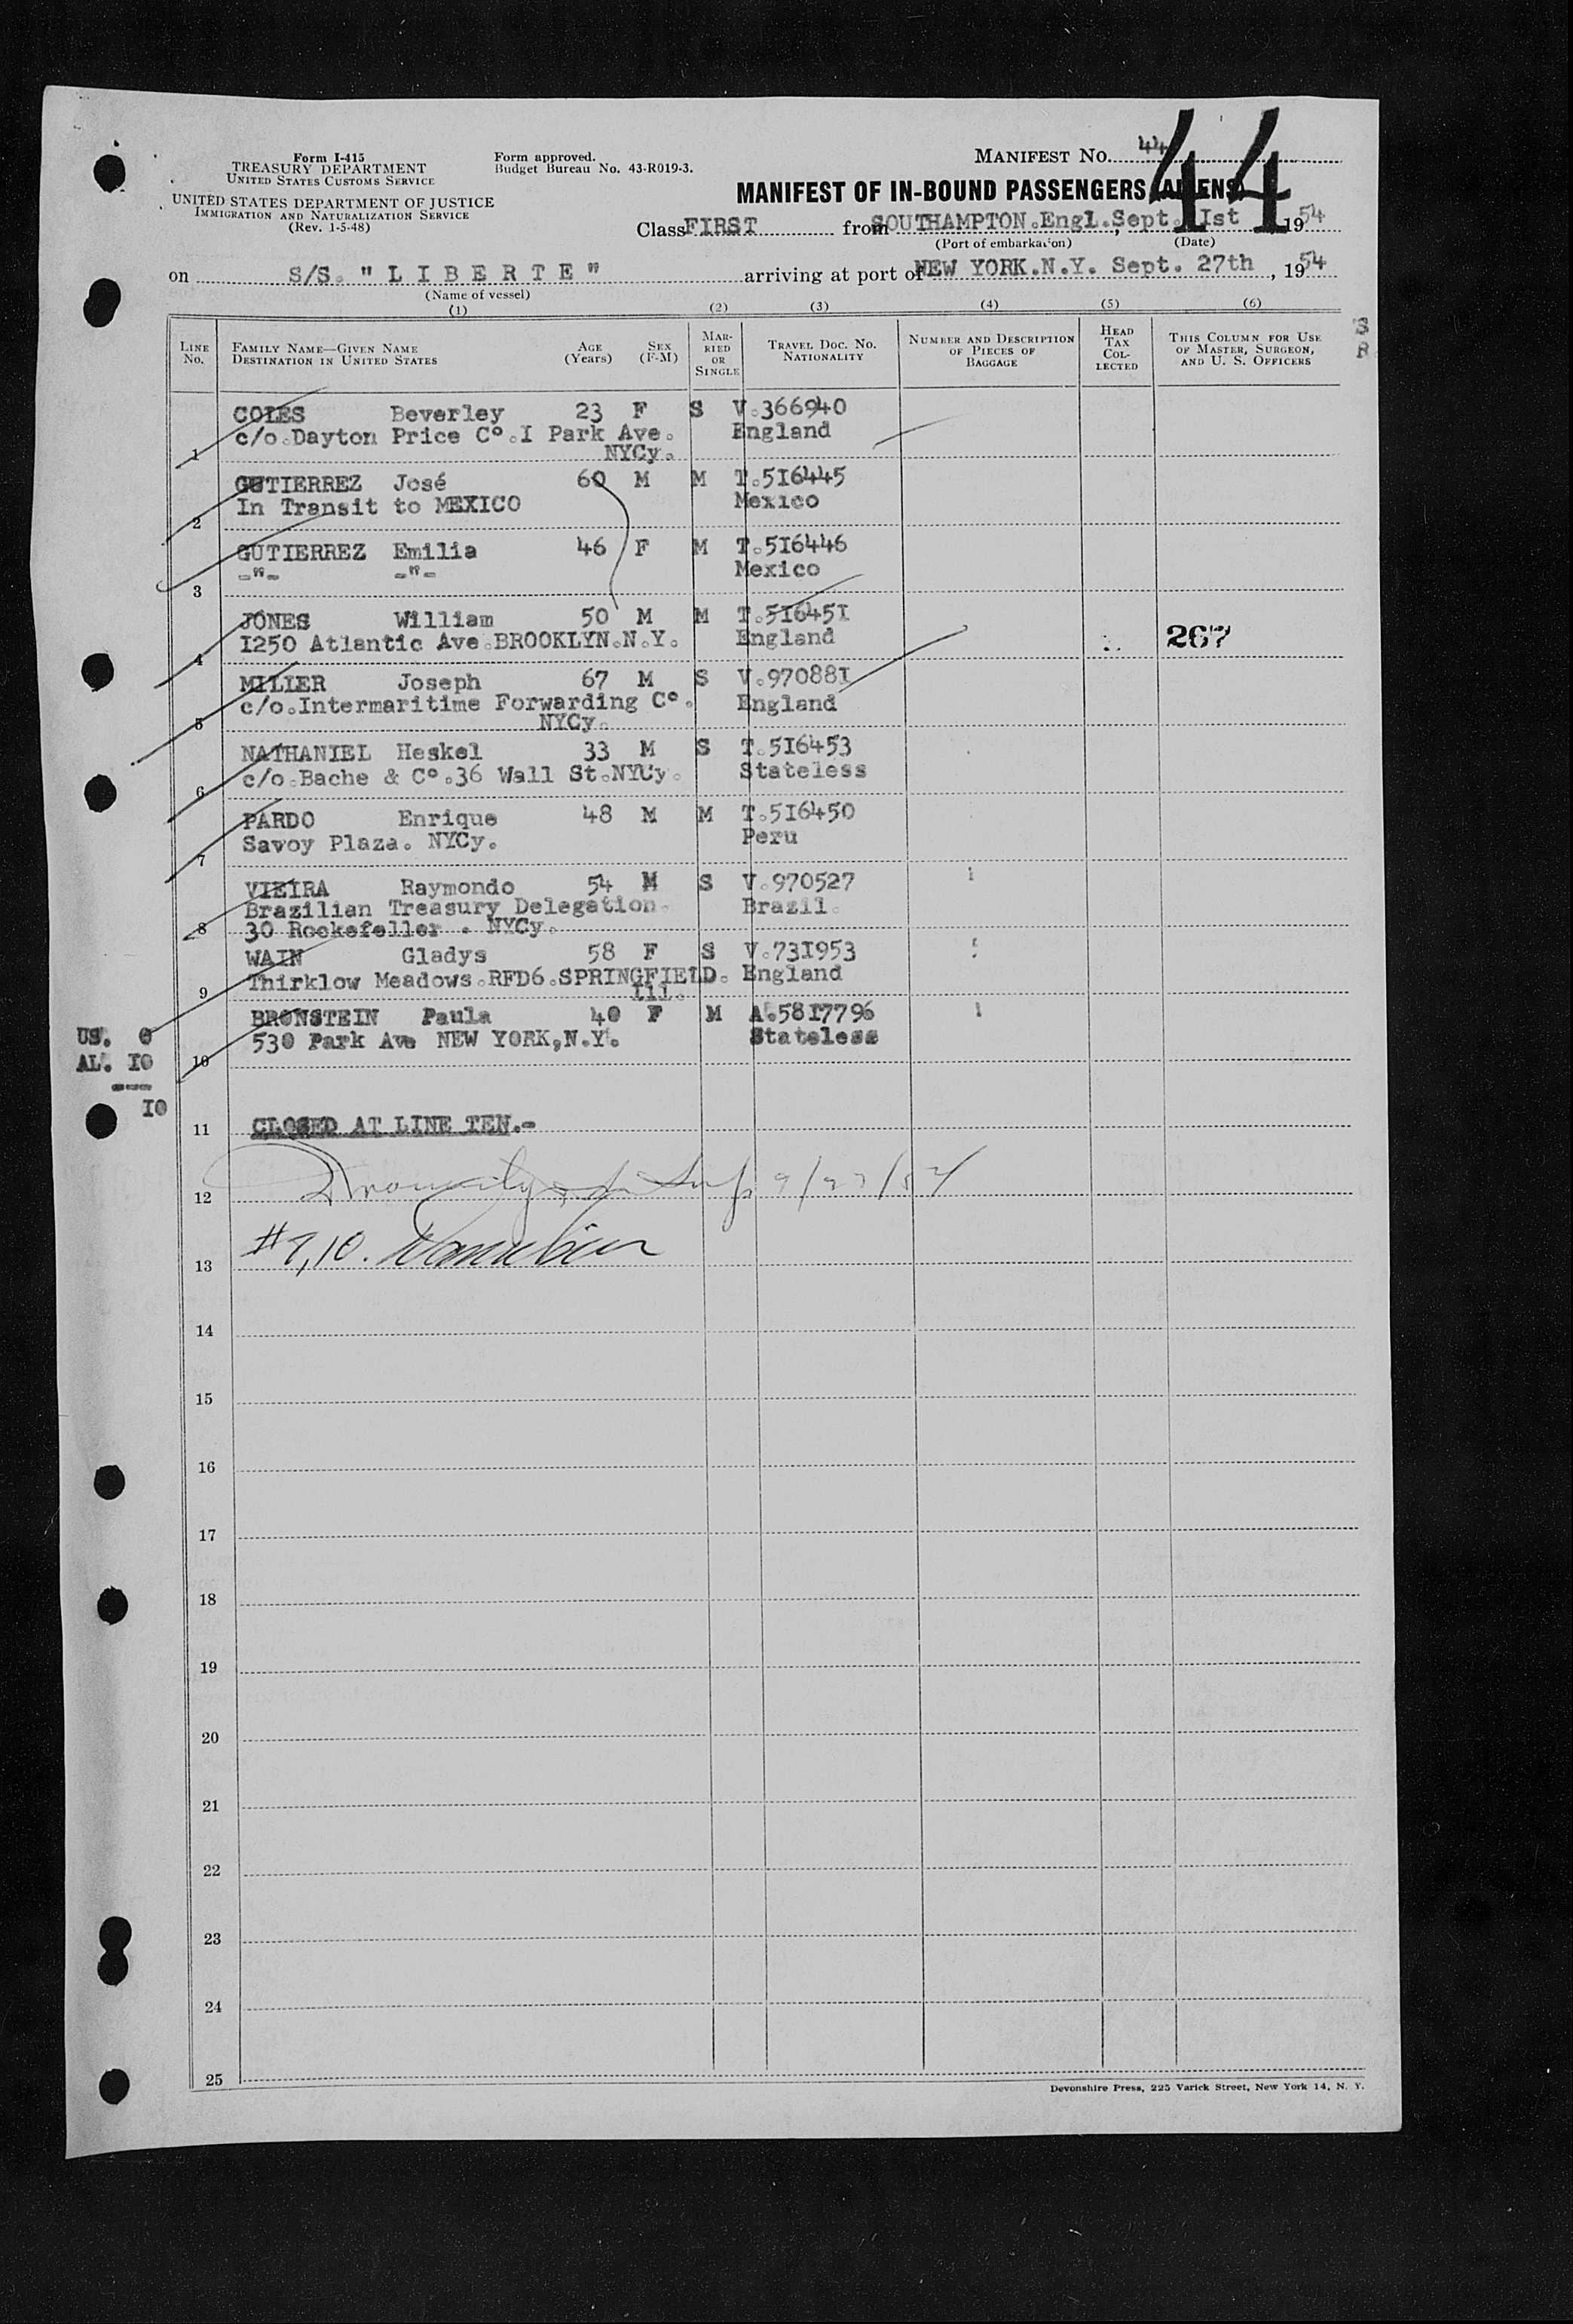 Form I-415
TREASURY DEPARTMENT
UNITED STATES CUSTOMS SERVICE
UNITED STATES DEPARTMENT OF JUSTICE
IMMIGRATION AND NATURALIZATION SERVICE
(Rev. 1-5-48)
Form approved.
Budget Bureau No. 43-R019-3.
MANIFEST NO. 44
44
MANIFEST OF IN-BOUND PASSENGERS (ALIENS)
Class FIRST from SOUTHAMPTON.Engl.Sept. Ist 1954
(Port of embarkation) (Date)
on S/S. "L I B E R T E" arriving at port of NEW YORK.N.Y. Sept. 27th, 1954
(Name of vessel)
(1) (2) (3) (4) (5) (6)
LINE NO.
FAMILY NAME—GIVEN NAME
DESTINATION IN UNITED STATES
AGE (Years)
SEX (F-M)
MARRIED OR SINGLE
TRAVEL DOC. NO. NATIONALITY
NUMBER AND DESCRIPTION OF PIECES OF BAGGAGE
HEAD TAX COLLECTED
THIS COLUMN FOR USE OF MASTER, SURGEON, AND U. S. OFFICERS
COLES Beverley 23 F S V.366940
c/o.Dayton Price Co.I Park Ave. England
1 NYCy.
GUTIERREZ José 60 M M T.516445
In Transit to MEXICO Mexico
2
GUTIERREZ Emilia 46 F M T.516446
-"- -"- Mexico
3
JONES William 50 M M T.516451
1250 Atlantic Ave.BROOKLYN.N.Y. England 267
4
MILLER Joseph 67 M S V.970881
c/o.Intermaritime Forwarding Co. England
5 NYCy.
NATHANIEL Heskel 33 M S T.516453
c/o.Bache & Co.36 Wall St.NYCy. Stateless
6
PARDO Enrique 48 M M T.516450
Savoy Plaza. NYCy. Peru
7
VIEIRA Raymondo 54 M S V.970527
Brazilian Treasury Delegation. Brazil.
8 30 Rockefeller . NYCy.
WAIN Gladys 58 F S V.731953
Thirklow Meadows.RFD6.SPRINGFIELD. England
9 Ill.
BRONSTEIN Paula 40 F M A.5817796
530 Park Ave NEW YORK,N.Y. Stateless
10
US. 0
AL. 10
---
10
11 CLOSED AT LINE TEN.-
12 9/27/54
#7,10.
13
14
15
16
17
18
19
20
21
22
23
24
25
Devonshire Press, 225 Varick Street, New York 14, N. Y.